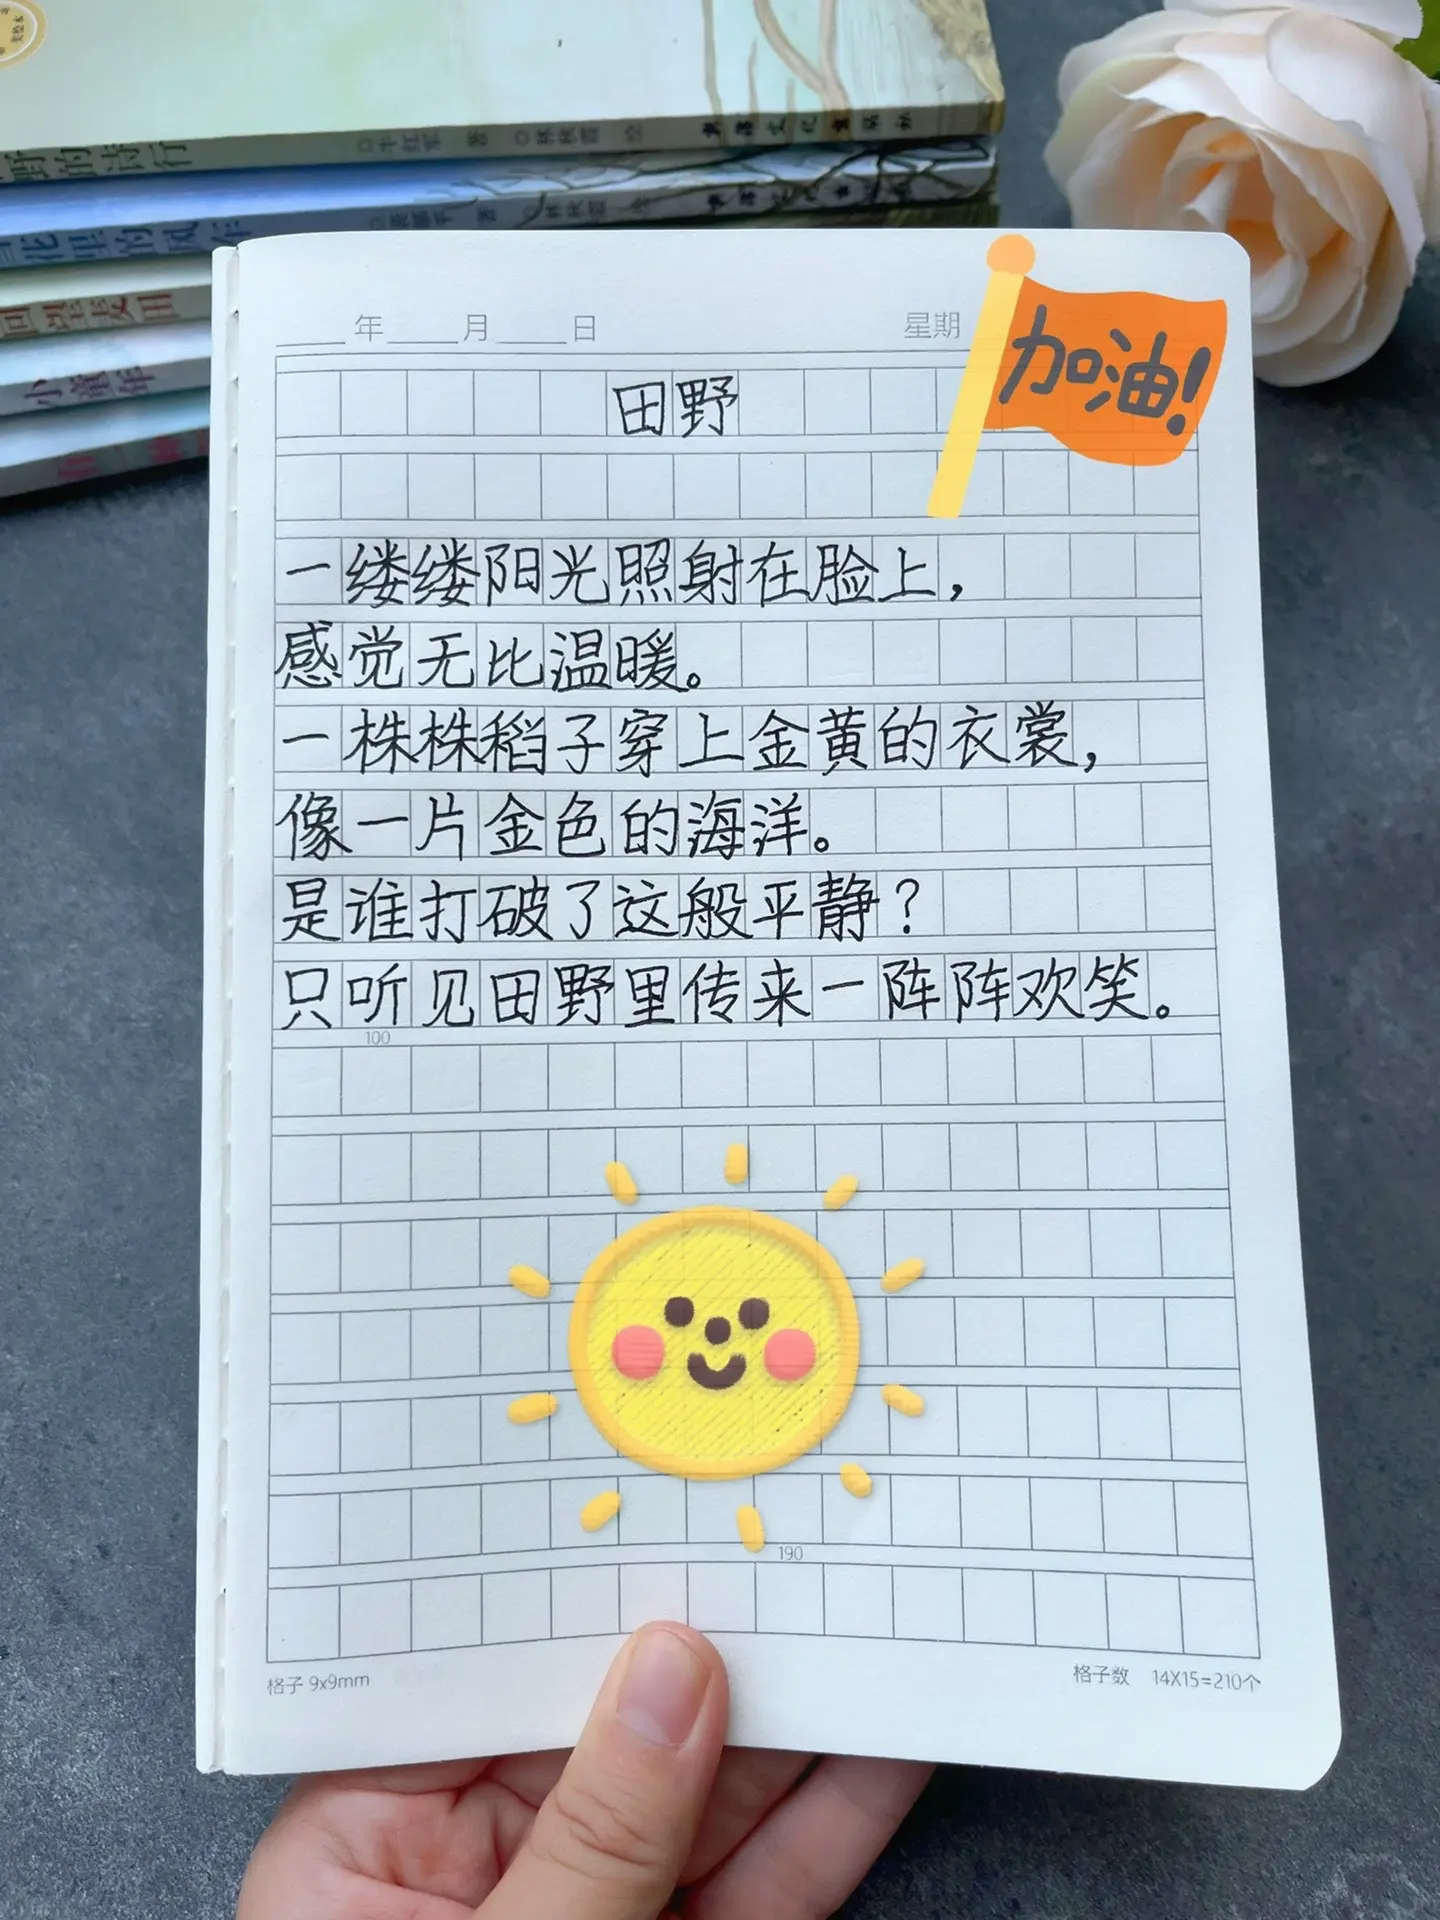 牛红军 著 林秋霞 绘
小童年
年 月 日 星期
加油!
田野
一缕缕阳光照射在脸上，
感觉无比温暖。
一株株稻子穿上金黄的衣裳，
像一片金色的海洋。
是谁打破了这般平静？
只听见田野里传来一阵阵欢笑。
100
190
格子 9x9mm
格子数 14X15=210个